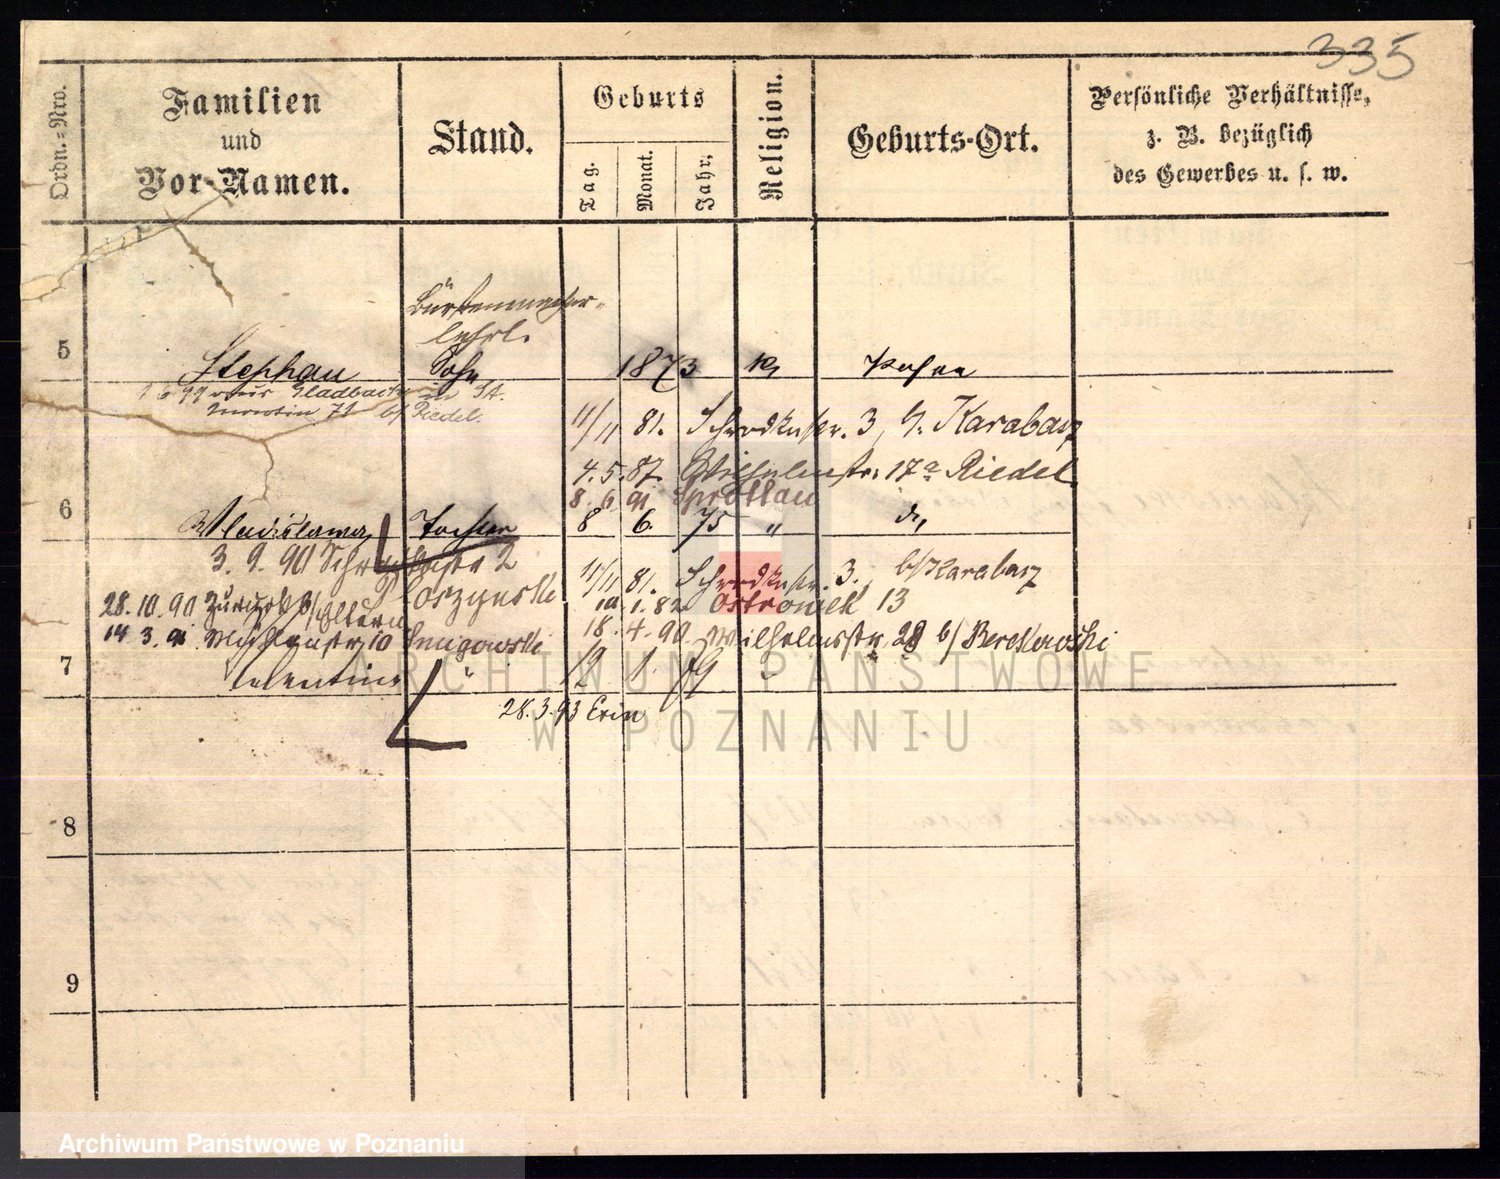 335
Ordn.=Nro.
Familien
und
Vor-Namen.
Stand.
Geburts
Tag.
Monat.
Jahr.
Religion.
Geburts-Ort.
Persönliche Verhältnisse,
z. B. bezüglich
des Gewerbes u. s. w.
Bürstenmacher-
lehrl.
5 Stephan Sohn 1873 K Posen
aus Gladbach in St.
Martin 71 b/ Riedel.
11/11 81. Schrodkastr. 3, b. Karabasz
4. 5. 87. Wilhelmstr. 17a Riedel
8. 6. 91 Sprottau
6 Wladislawa Tochter 8 6. 75 " do
3. 9. 90 2
11/11 81. Schrodkastr. 3. b/ Karabasz
28. 10. 90 Zurück b/ Eltern
10. 1. 82 Ostrowek 13
14 3. 91 Mühlenstr 10 Smigowski
18. 4. 90 Wilhelmstr. 28 b/ Berekowski
7 Valentine " 12 1. 79
28. 3. 93 Exin
8
9
ARCHIWUM PAŃSTWOWE
W POZNANIU
Archiwum Państwowe w Poznaniu